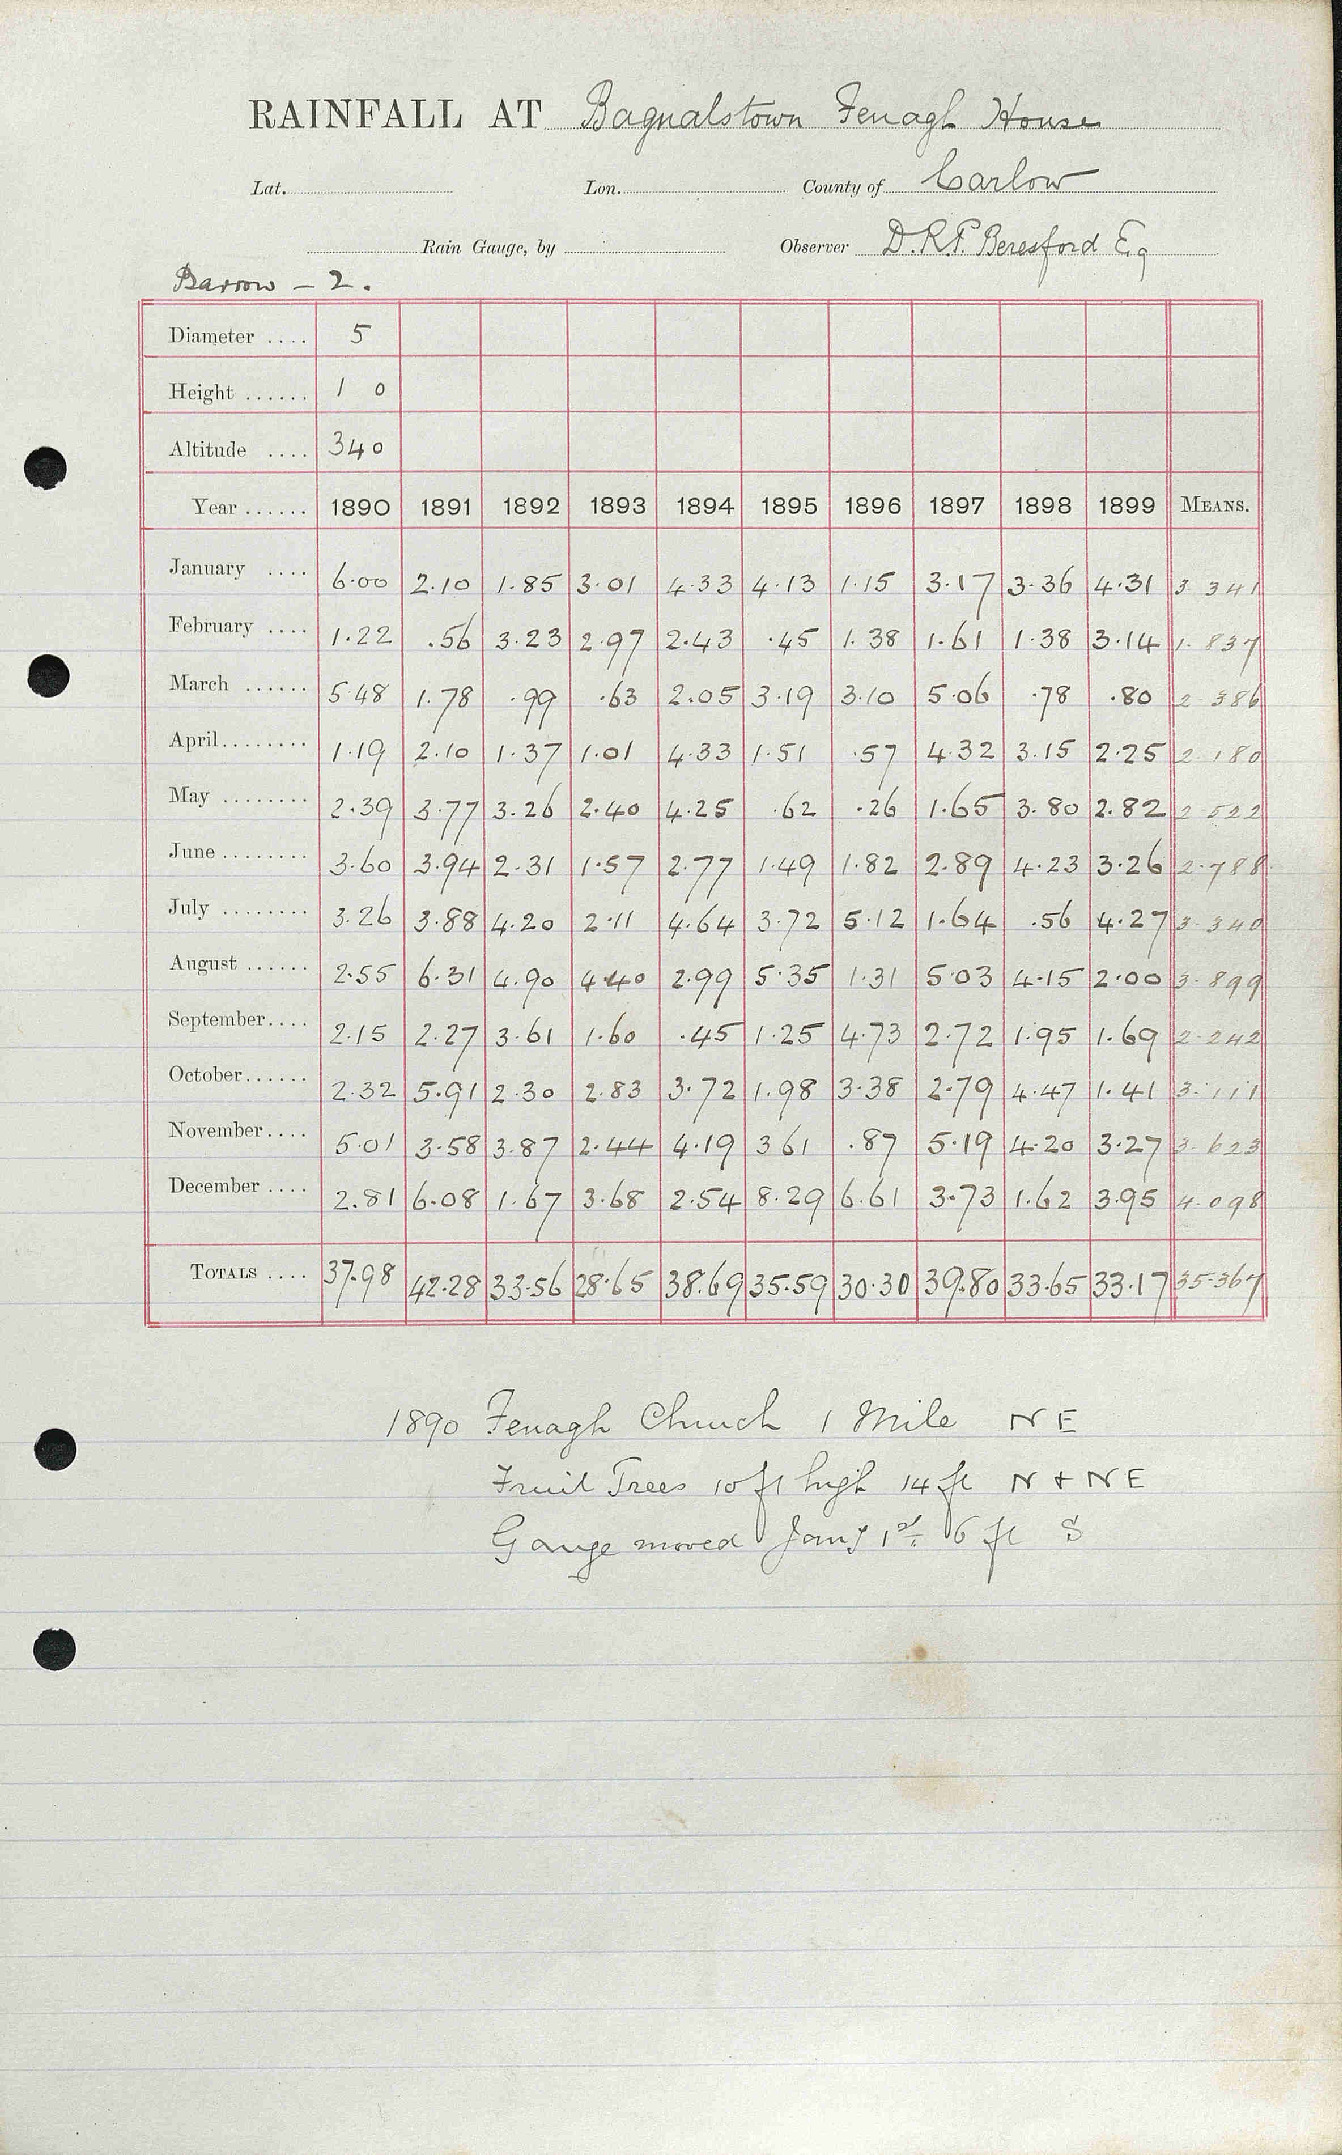 RAINFALL AT Bagnalstown Fenagh House
Lat. Lon. County of Carlow
Rain Gauge, by Observer D.R.P. Beresford Eq
Barrow – 2.
Diameter .... 5
Height ...... 1 0
Altitude .... 340
Year ...... 1890 1891 1892 1893 1894 1895 1896 1897 1898 1899 MEANS.
January .... 6.00 2.10 1.85 3.01 4.33 4.13 1.15 3.17 3.36 4.31 3 341
February .... 1.22 .56 3.23 2.97 2.43 .45 1.38 1.61 1.38 3.14 1.837
March ...... 5.48 1.78 .99 .63 2.05 3.19 3.10 5.06 .78 .80 2 386
April........ 1.19 2.10 1.37 1.01 4.33 1.51 .57 4.32 3.15 2.25 2 180
May ........ 2.39 3.77 3.26 2.40 4.25 .62 .26 1.65 3.80 2.82 2 522
June ........ 3.60 3.94 2.31 1.57 2.77 1.49 1.82 2.89 4.23 3.26 2.788
July ........ 3.26 3.88 4.20 2.11 4.64 3.72 5.12 1.64 .56 4.27 3.340
August ...... 2.55 6.31 4.90 4.40 2.99 5.35 1.31 5.03 4.15 2.00 3.899
September.... 2.15 2.27 3.61 1.60 .45 1.25 4.73 2.72 1.95 1.69 2.242
October...... 2.32 5.91 2.30 2.83 3.72 1.98 3.38 2.79 4.47 1.41 3.111
November.... 5.01 3.58 3.87 2.44 4.19 3 61 .87 5.19 4.20 3.27 3.623
December .... 2.81 6.08 1.67 3.68 2.54 8.29 6.61 3.73 1.62 3.95 4.098
TOTALS .... 37.98 42.28 33.56 28.65 38.69 35.59 30.30 39.80 33.65 33.17 35.367
1890 Fenagh Church 1 Mile N E
Fruit Trees 10 ft high 14 ft N + N E
Gauge moved Jany 1st. 6 ft S